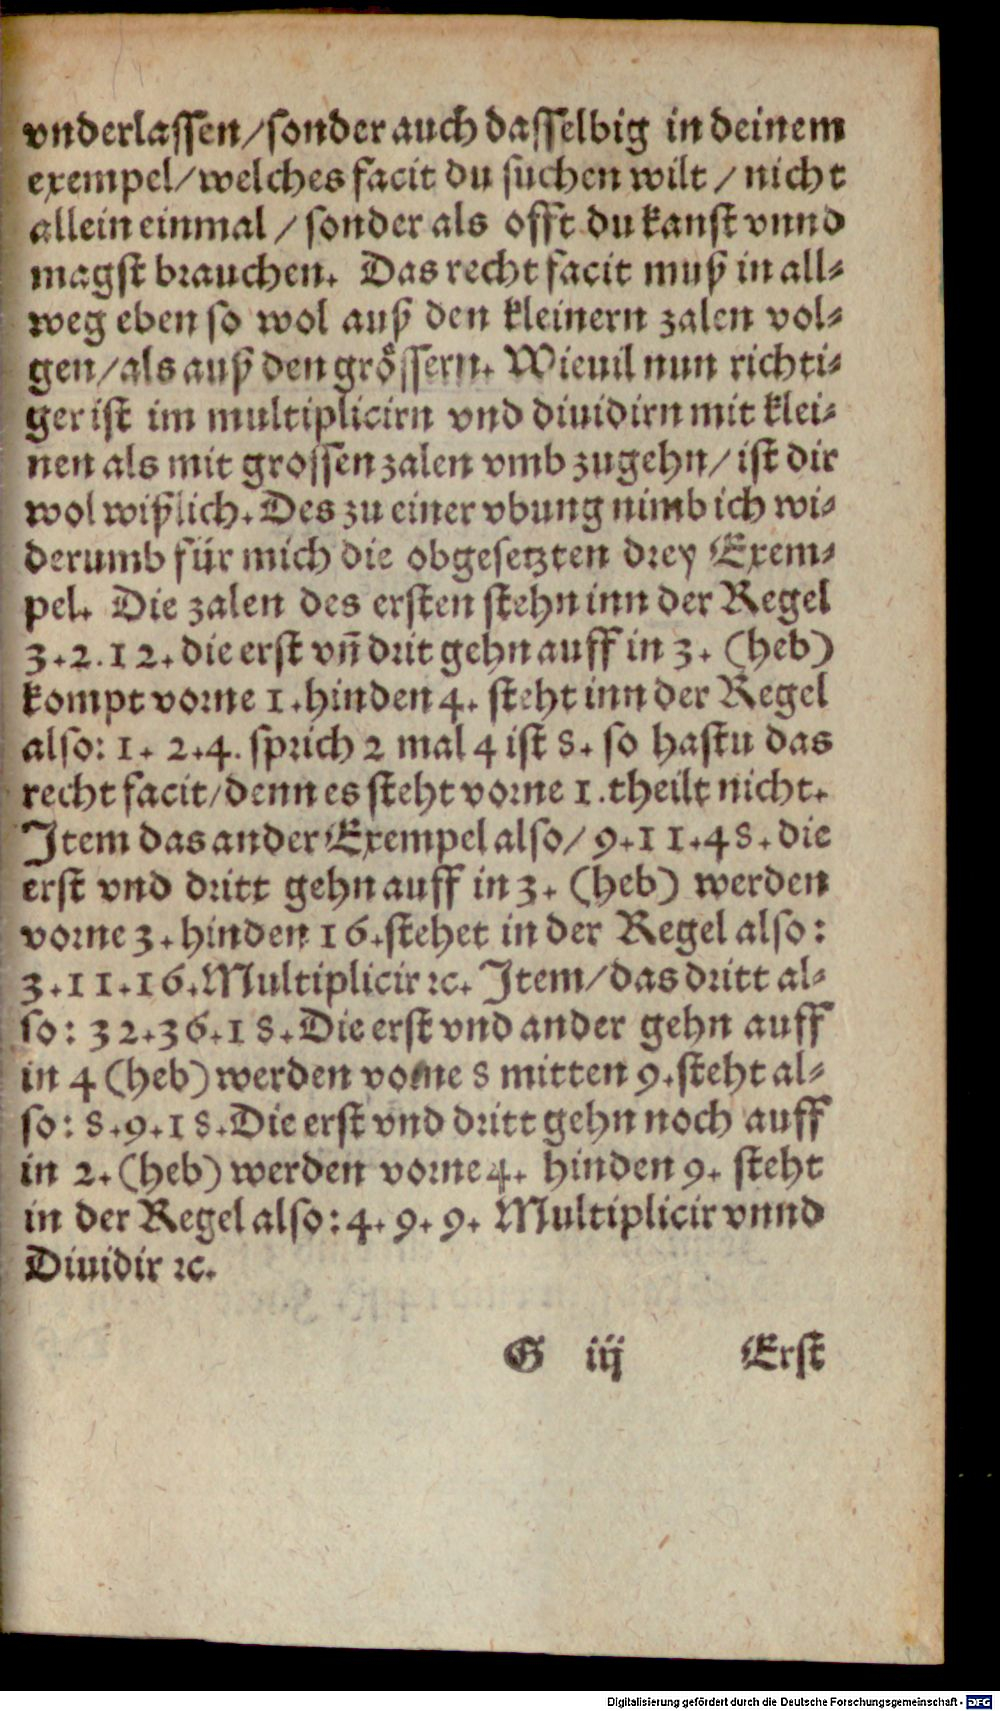 vnderlassen/sonder auch dasselbig in deinem
exempel/welches facit du suchen wilt / nicht
allein einmal / sonder als offt du kanst vnnd
magst brauchen. Das recht facit muß in all⸗
weg eben so wol auß den kleinern zalen vol⸗
gen/als auß den grössern. Wieuil nun richti⸗
ger ist im multiplicirn vnd diuidirn mit klei⸗
nen als mit grossen zalen vmb zugehn/ist dir
wol wißlich. Des zu einer vbung nimb ich wi⸗
derumb für mich die obgesetzten drey Exem⸗
pel. Die zalen des ersten stehn inn der Regel
3.2.12. die erst vñ drit gehn auff in 3. (heb)
kompt vorne 1. hinden 4. steht inn der Regel
also: 1. 2.4. sprich 2 mal 4 ist 8. so hastu das
recht facit/denn es steht vorne 1. theilt nicht.
Item das ander Exempel also/ 9.11.48. die
erst vnd dritt gehn auff in 3. (heb) werden
vorne 3. hinden 16. stehet in der Regel also:
3.11.16. Multiplicir ꝛc. Item/das dritt al⸗
so: 32.36.18. Die erst vnd ander gehn auff
in 4 (heb) werden vorne 8 mitten 9. steht al⸗
so: 8.9.18. Die erst vnd dritt gehn noch auff
in 2. (heb) werden vorne 4. hinden 9. steht
in der Regel also: 4. 9. 9. Multiplicir vnnd
Diuidir ꝛc.
G iij Erst
Digitalisierung gefördert durch die Deutsche Forschungsgemeinschaft - DFG